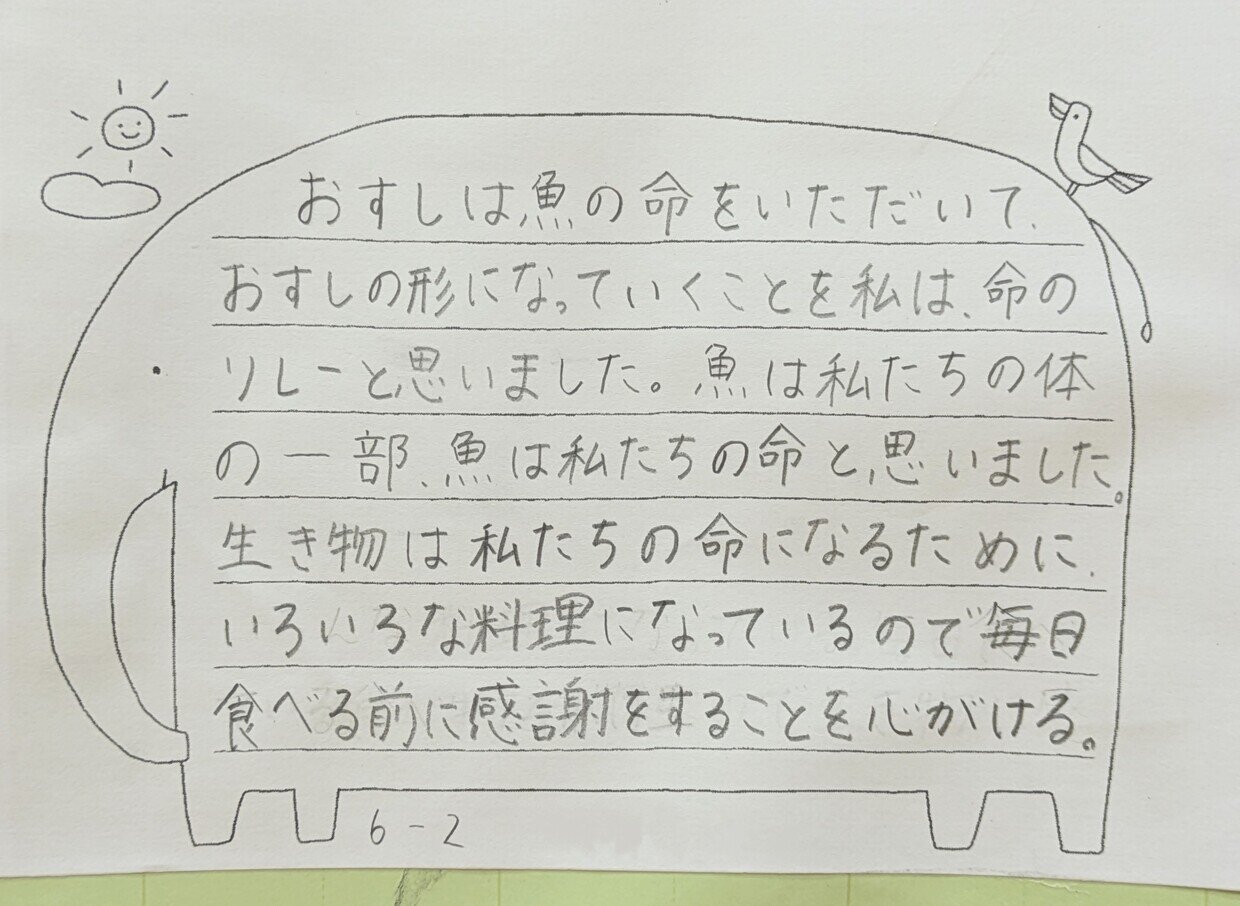 おすしは魚の命をいただいて、
おすしの形になっていくことを私は、命の
リレーと思いました。魚は私たちの体
の一部、魚は私たちの命と思いました。
生き物は私たちの命になるために、
いろいろな料理になっているので毎日
食べる前に感謝をすることを心がける。
6-2